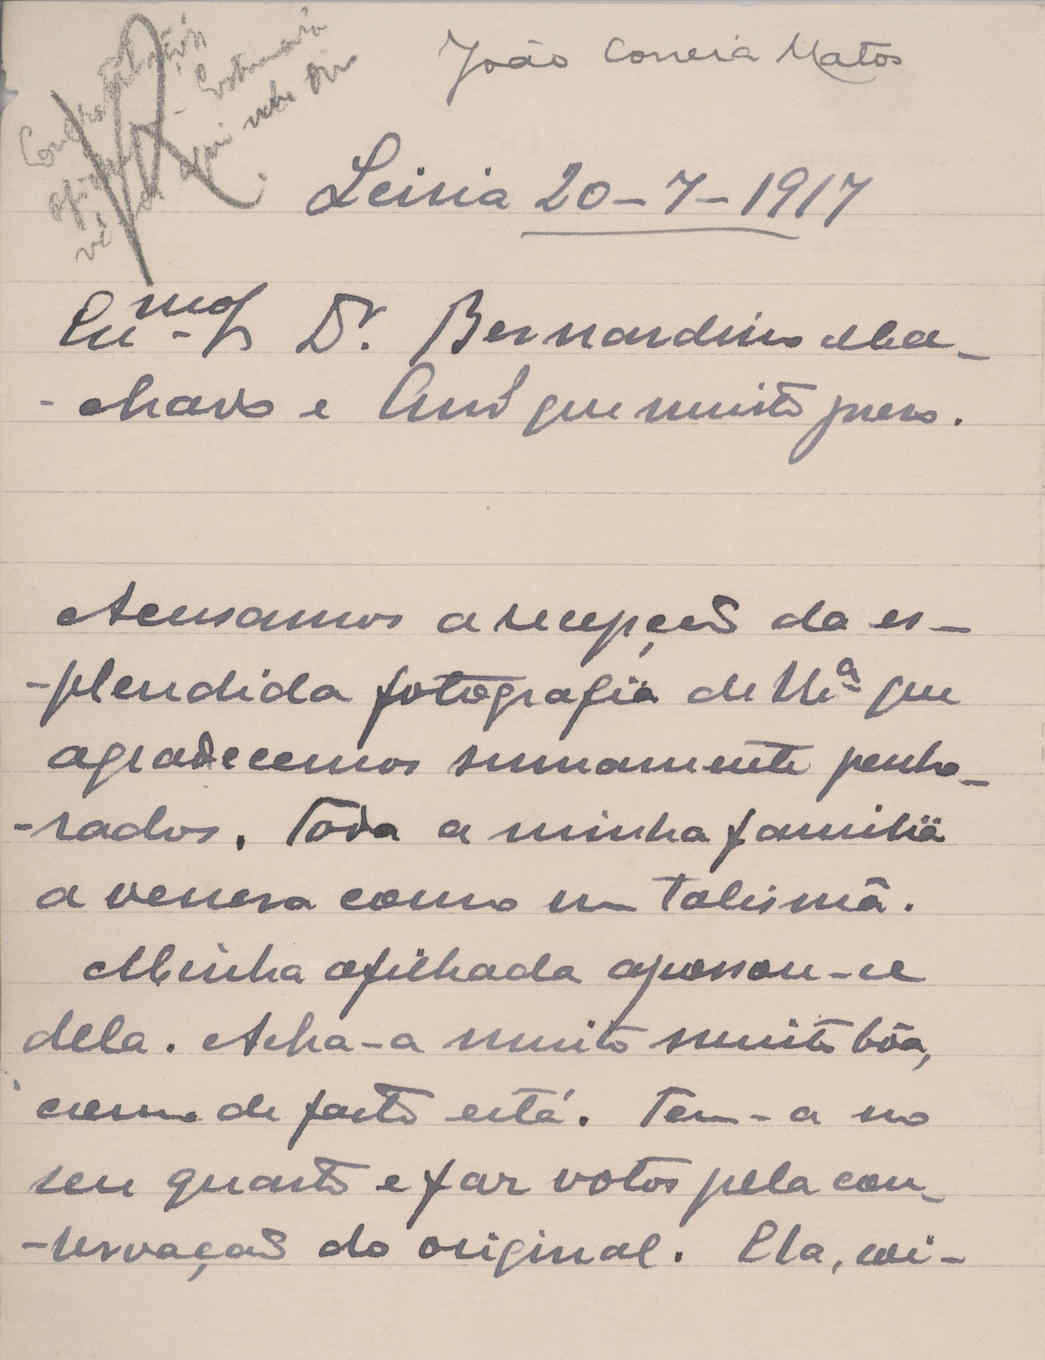 João Correia Matos
Leiria 20-7-1917
Exmo Sr Dr. Bernardino Ma-
-chado e Amº que muito preso.
Acusamos a recepção da es-
-plendida fotografia de V.Exª que
agradecemos sumamente penho-
-rados. Tôda a minha familia
a venera como um talismã.
Minha afilhada apossou-se
dela. Acha-a muito muito bôa,
como de facto está. Tem-a no
seu quarto e faz votos pela con-
-servação do original. Ela, coi-